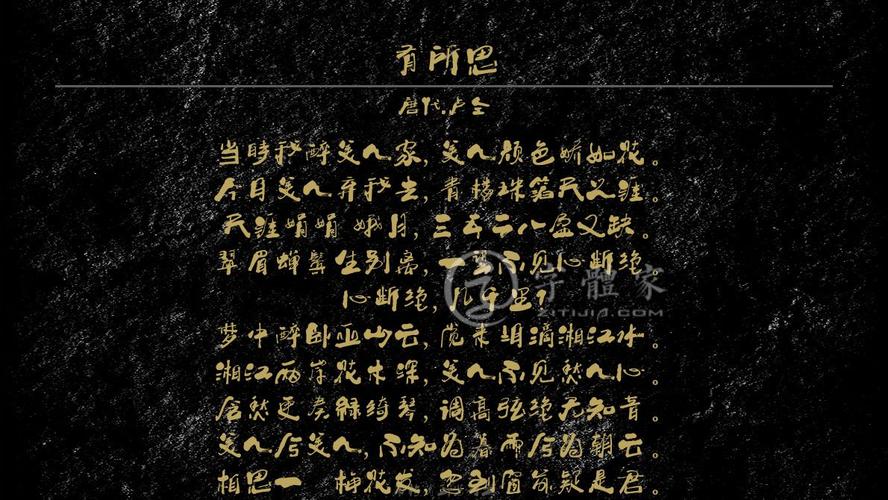 有所思
唐代.卢仝
当时我醉美人家,美人颜色娇如花。
今日美人弃我去,青楼珠箔天之涯。
天涯娟娟 娥月,三五二八盈又缺。
翠眉蝉鬓生别离,一望不见心断绝。
心断绝,几千里?
梦中醉卧巫山云,觉来泪滴湘江水。
湘江两岸花木深,美人不见愁人心。
含愁更奏绿绮琴,调高弦绝无知音。
美人兮美人,不知为暮雨兮为朝云。
相思一 梅花发,忽到窗前疑是君。
字體家
ZITIJIA.COM